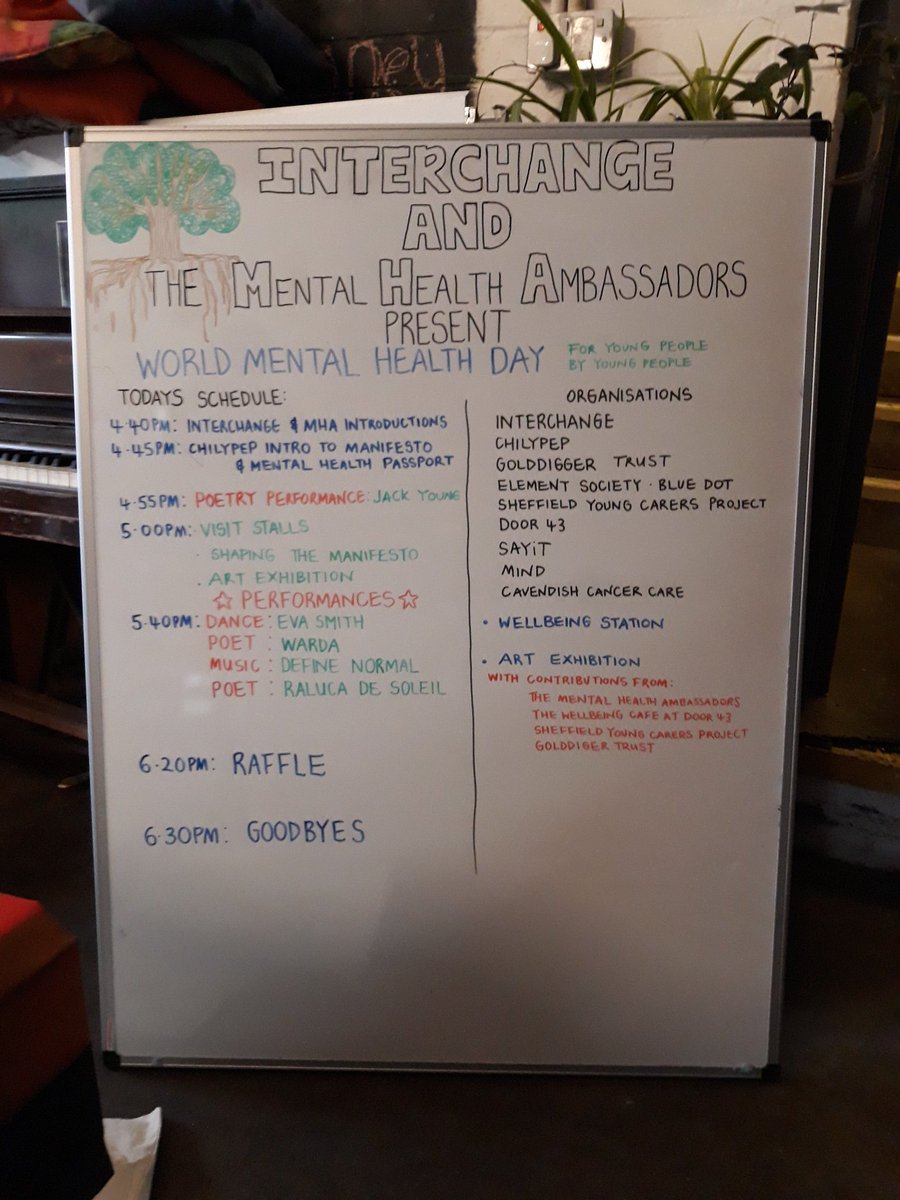 INTERCHANGE
AND
THE MENTAL HEALTH AMBASSADORS
PRESENT
WORLD MENTAL HEALTH DAY
FOR YOUNG PEOPLE
BY YOUNG PEOPLE
TODAYS SCHEDULE:
4·40PM: INTERCHANGE & MHA INTRODUCTIONS
4·45PM: CHILYPEP INTRO TO MANIFESTO
& MENTAL HEALTH PASSPORT
4·55PM: POETRY PERFORMANCE: JACK YOUNG
5·00PM: VISIT STALLS
· SHAPING THE MANIFESTO
· ART EXHIBITION
☆ PERFORMANCES ☆
5·40PM: DANCE: EVA SMITH
POET : WARDA
MUSIC : DEFINE NORMAL
POET : RALUCA DE SOLEIL
6·20PM: RAFFLE
6·30PM: GOODBYES
ORGANISATIONS
INTERCHANGE
CHILYPEP
GOLDDIGGER TRUST
ELEMENT SOCIETY · BLUE DOT
SHEFFIELD YOUNG CARERS PROJECT
DOOR 43
SAYiT
MIND
CAVENDISH CANCER CARE
· WELLBEING STATION
· ART EXHIBITION
WITH CONTRIBUTIONS FROM:
THE MENTAL HEALTH AMBASSADORS
THE WELLBEING CAFE AT DOOR 43
SHEFFIELD YOUNG CARERS PROJECT
GOLDDIGER TRUST